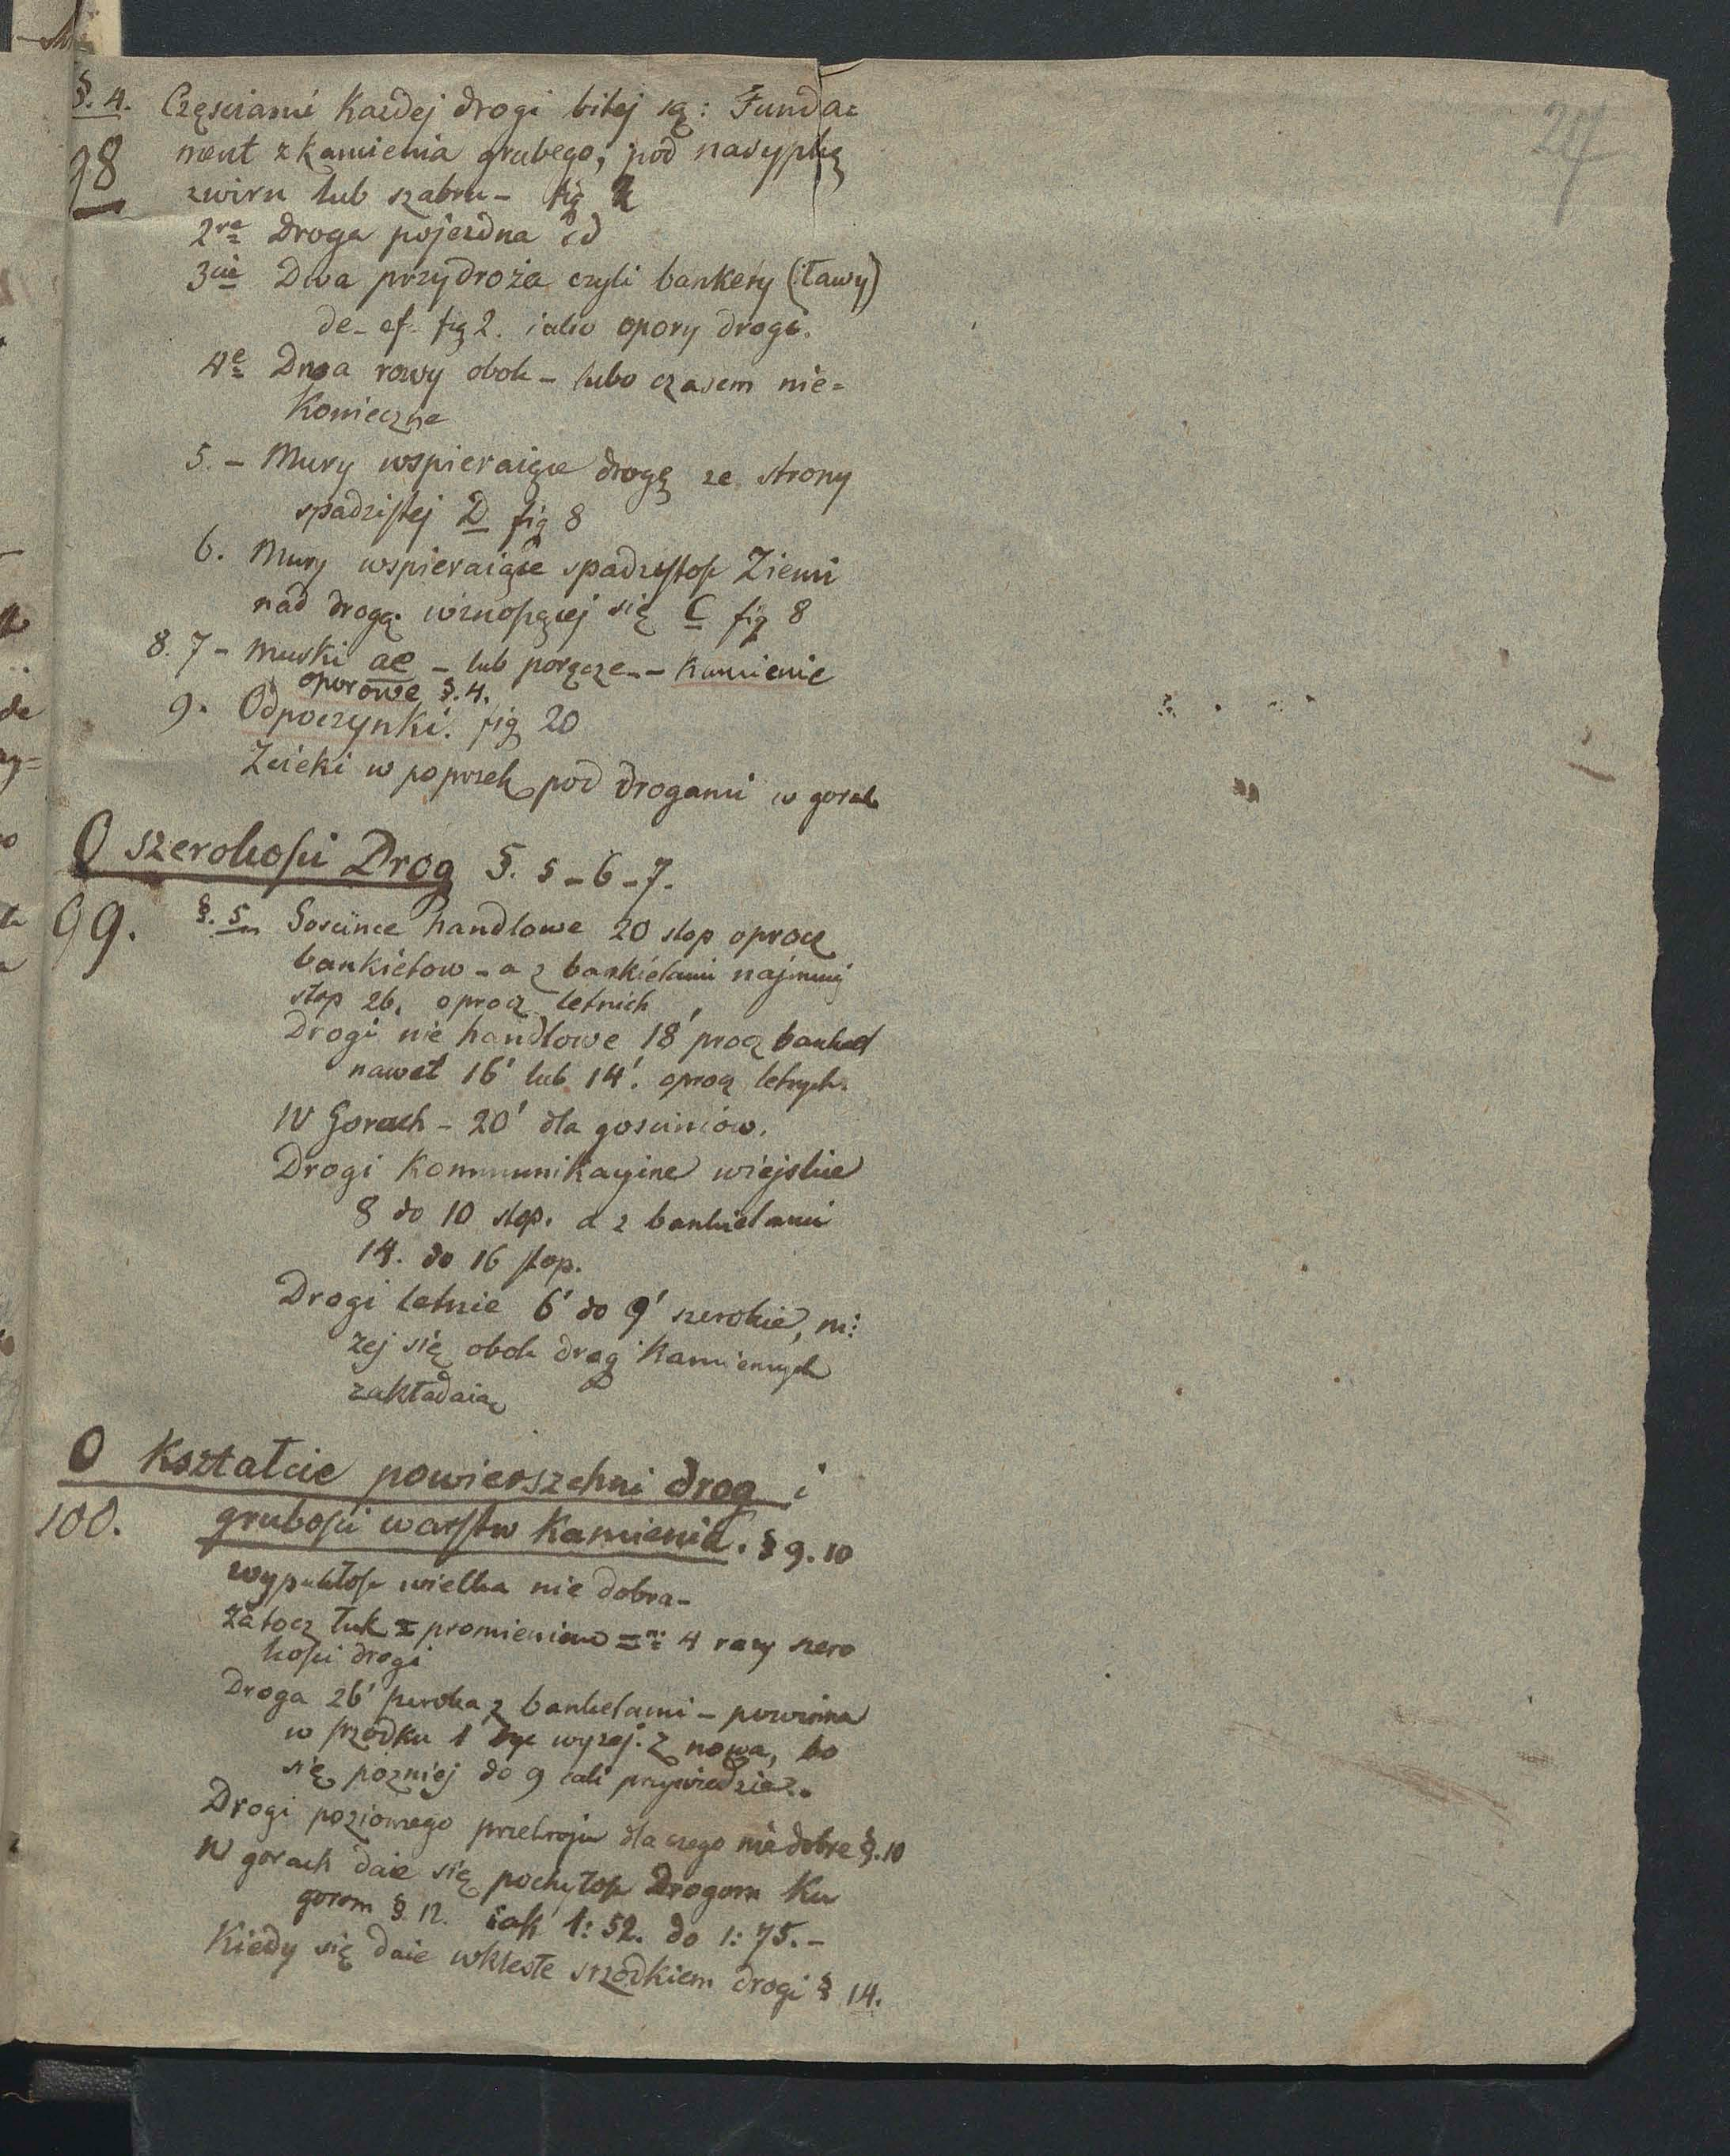 24
§. 4. Częsciami Każdej drogi bitej są: Funda=
98 ment z kamienia grubego, pod nasypką
zwiru lub szabru - fig 2
2re Droga pojezdna cd
3cie Dwa przydroża czyli bankety (ławy)
de - ef - fig 2. iako opory drogi.
4e Dwa rowy obok - lubo czasem nie=
Konieczne
5. - Mury wspieraiące drogę ze strony
spadzistej D fig 8
6. Mury wspieraiące spadzistość Ziemi
nad drogą wznoszącej się C fig 8
8. 7 - Murki ae - lub poręcze - - Kamienie
oporowe §. 4.
9. Odpoczynki. fig 20
Zcieki w poprzek pod drogami w gorach
O szerokości Drog §. 5 - 6 - 7.
99. §. 5. Goscince handlowe 20 stop oprocz
bankietow - a z bankietami najmniej
stop 26. oprocz letnich
Drogi nie handlowe 18' procz banket
nawet 16' lub 14'. oprocz letnych.
W Gorach - 20' dla gosciniców.
Drogi Kommunikacyine wiejskie
8 do 10 stop. a z bankietami
14. do 16 stop.
Drogi letnie 6' do 9' szerokie, ni:
żej się obok drog Kamiennych
zakładaią
O Kształcie powierszchni drog i
100. grubości warstw Kamienia. § 9. 10
wypukłość wielka nie dobra -
zatocz łuk promieniem = 4 razy szero
kości drogi
Droga 26' szeroka z banketami - powinna
w srzodku 1 być wyzej. z nowa, bo
się pozniej do 9 cali przywiedzie.
Drogi poziomego przekroju dla czego nie dobre §. 10
W gorach daie się pochyłość Drogom Ku
gorom §. 12. iak 1: 52. do 1: 75. -
Kiedy się daie wklesłe srzodkiem drogi § 14.